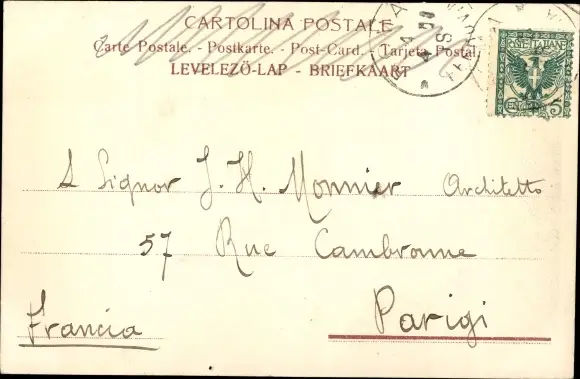 CARTOLINA POSTALE
Carte Postale. - Postkarte. - Post-Card. - Tarjeta Postal.
LEVELEZŐ-LAP - BRIEFKAART
POSTE ITALIANE
CENT. 5
A Signor J. H. Monnier Architetto
57 Rue Cambronne
Francia Parigi